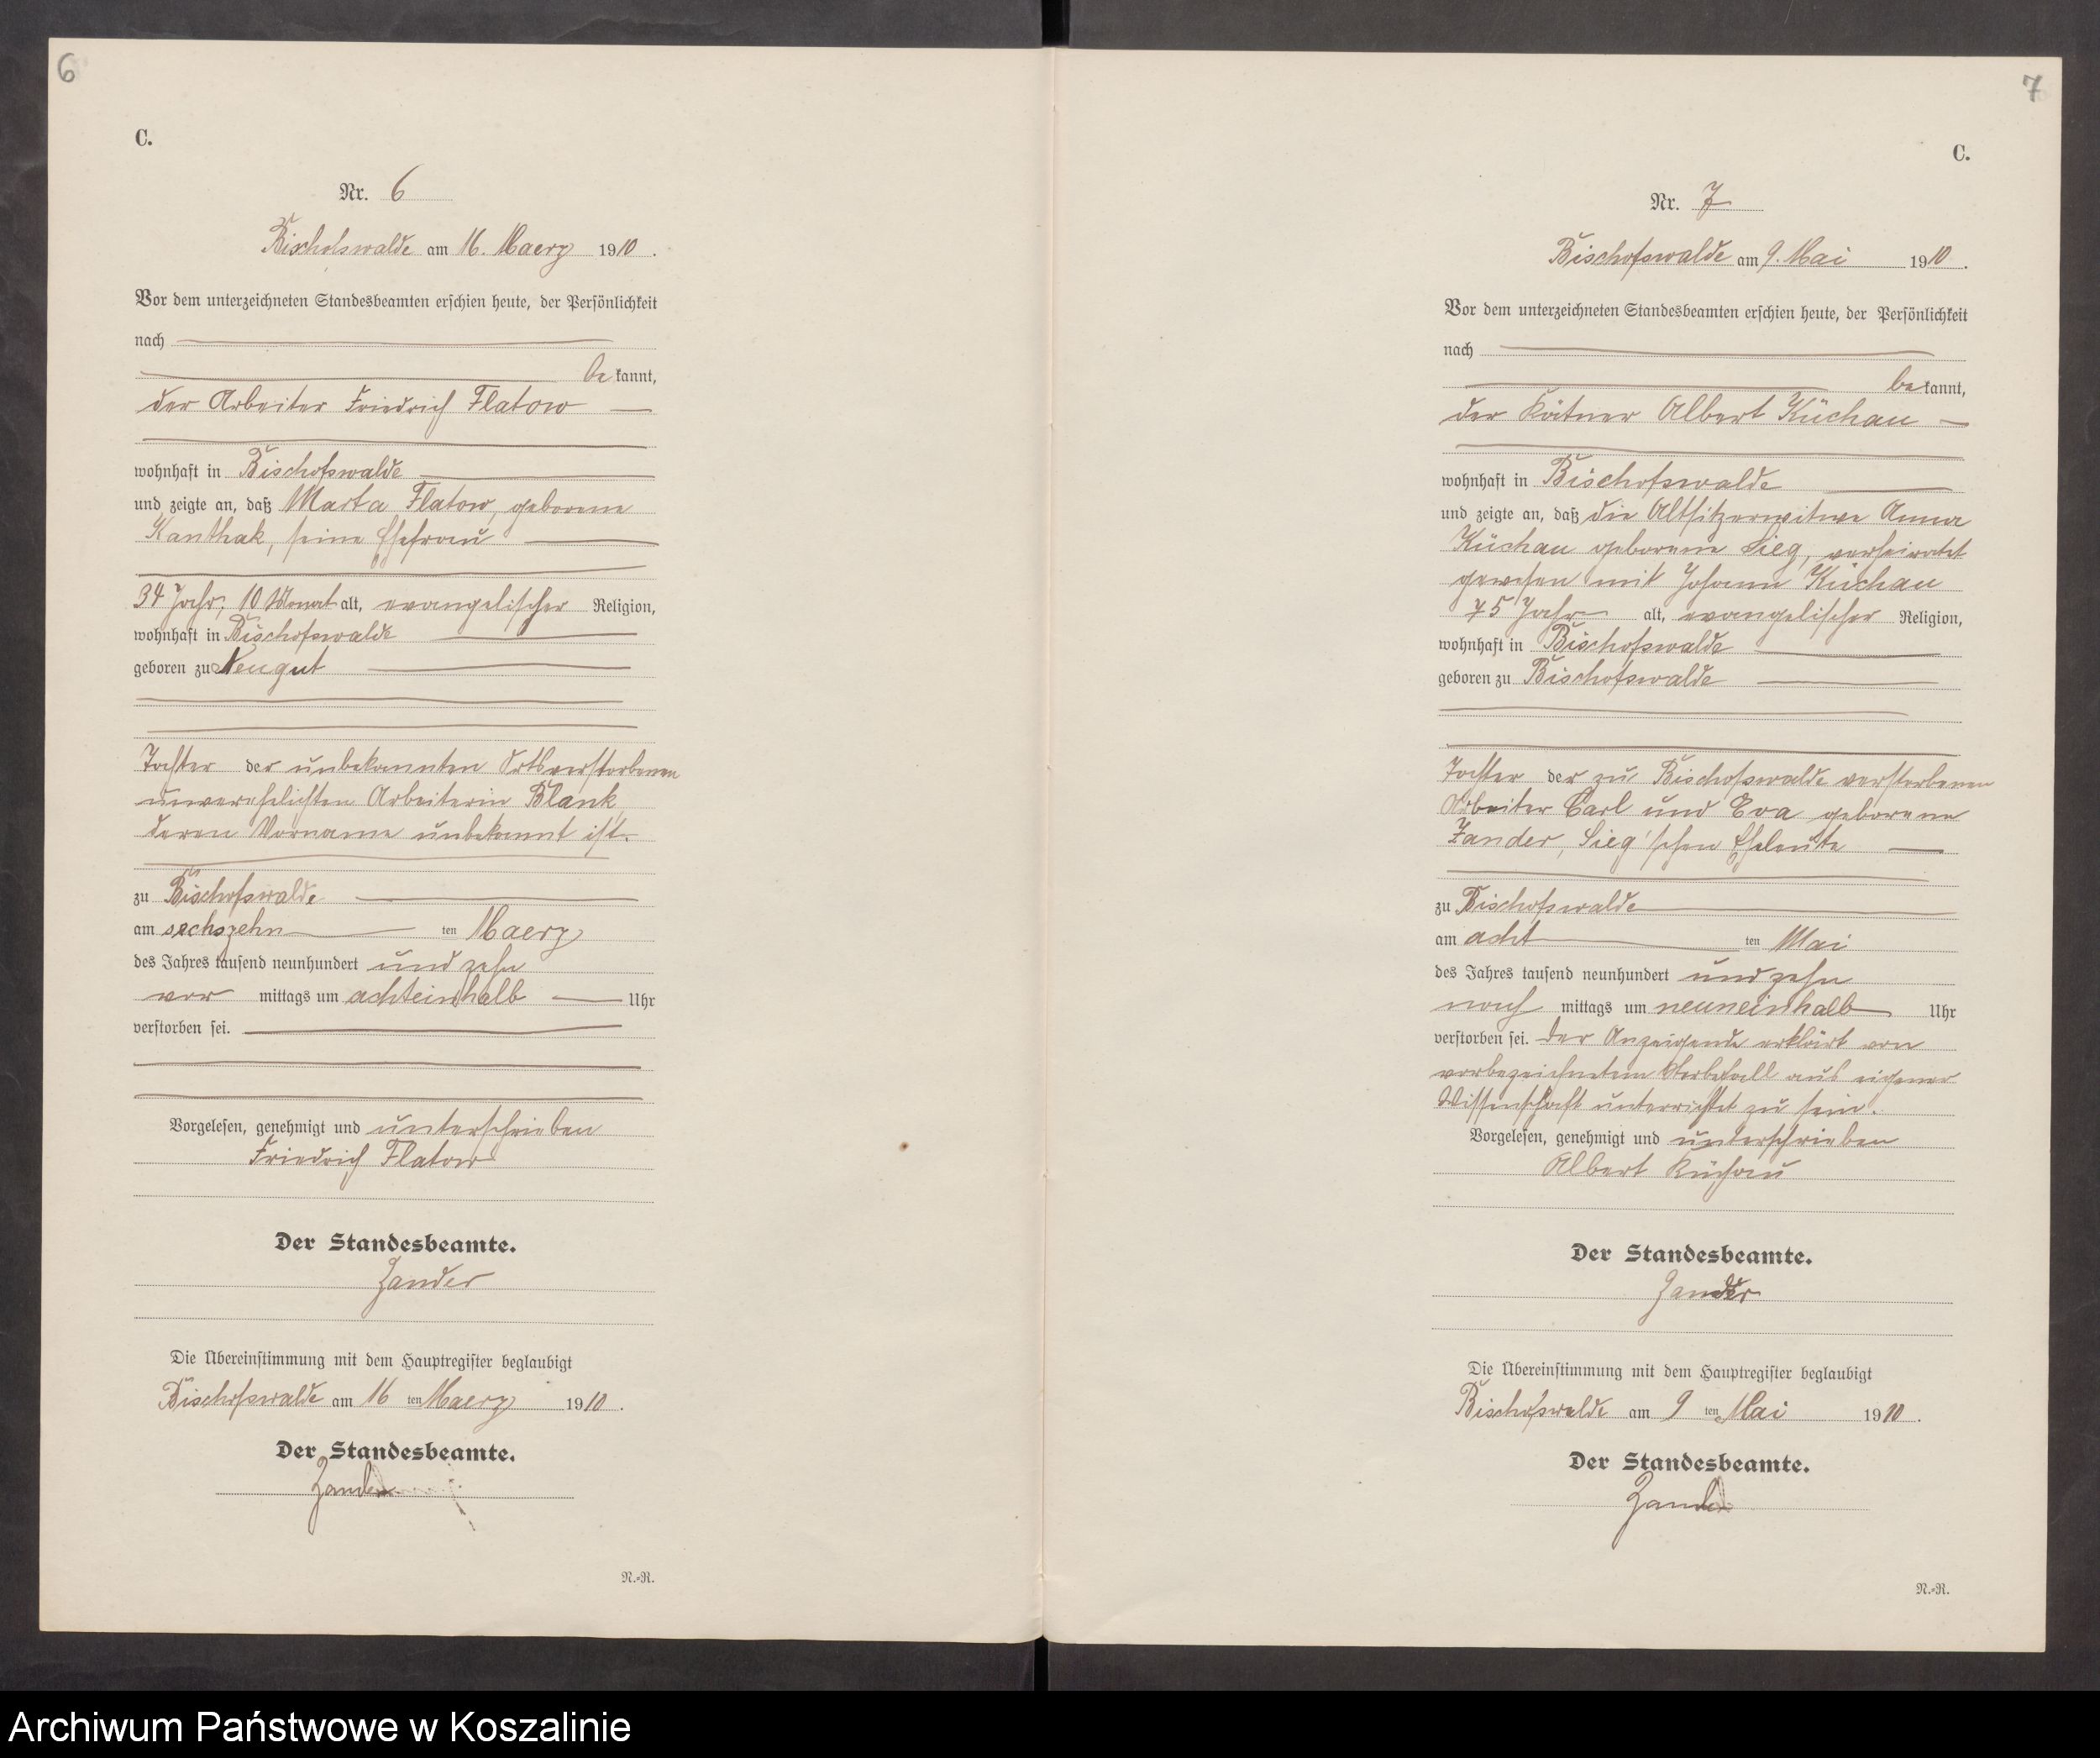 6
C.
Nr. 6
Bischofswalde am 16. Maerz 1910.
Vor dem unterzeichneten Standesbeamten erschien heute, der Persönlichkeit
nach
be kannt,
der Arbeiter Friedrich Flatow
wohnhaft in Bischofswalde
und zeigte an, daß Marta Flatow, geborene
Kanthak, seine Ehefrau
34 Jahr, 10 Monat alt, evangelischer Religion,
wohnhaft in Bischofswalde
geboren zu Neugut
Tochter der unbekannten Orts verstorbenen
unverehelichten Arbeiterin Blank,
deren Vorname unbekannt ist.
zu Bischofswalde
am sechszehn ten Maerz
des Jahres tausend neunhundert und zehn
vor mittags um achteinhalb Uhr
verstorben sei.
Vorgelesen, genehmigt und unterschrieben
Friedrich Flatow
Der Standesbeamte.
Zander
Die Übereinstimmung mit dem Hauptregister beglaubigt
Bischofswalde am 16 ten Maerz 1910.
Der Standesbeamte.
Zander
N.-R.
7
C.
Nr. 7
Bischofswalde am 9. Mai 1910.
Vor dem unterzeichneten Standesbeamten erschien heute, der Persönlichkeit
nach
be kannt,
der Kätner Albert Küchau
wohnhaft in Bischofswalde
und zeigte an, daß die Altsitzerwitwe Anna
Küchau geborene Sieg, verheiratet
gewesen mit Johann Küchau
75 Jahr alt, evangelischer Religion,
wohnhaft in Bischofswalde
geboren zu Bischofswalde
Tochter der zu Bischofswalde verstorbenen
Arbeiter Carl und Eva geborene
Zander, Sieg'schen Eheleute
zu Bischofswalde
am acht ten Mai
des Jahres tausend neunhundert und zehn
nach mittags um neuneinhalb Uhr
verstorben sei. Der Anzeigende erklärt von
vorbezeichnetem Sterbefall aus eigener
Wissenschaft unterrichtet zu sein.
Vorgelesen, genehmigt und unterschrieben
Albert Küchau
Der Standesbeamte.
Zander
Die Übereinstimmung mit dem Hauptregister beglaubigt
Bischofswalde am 9 ten Mai 1910.
Der Standesbeamte.
Zander
N.-R.
Archiwum Państwowe w Koszalinie